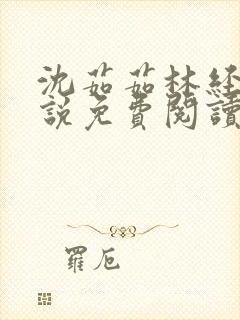 沈茹茹林经
說免費閱讀
羅卮